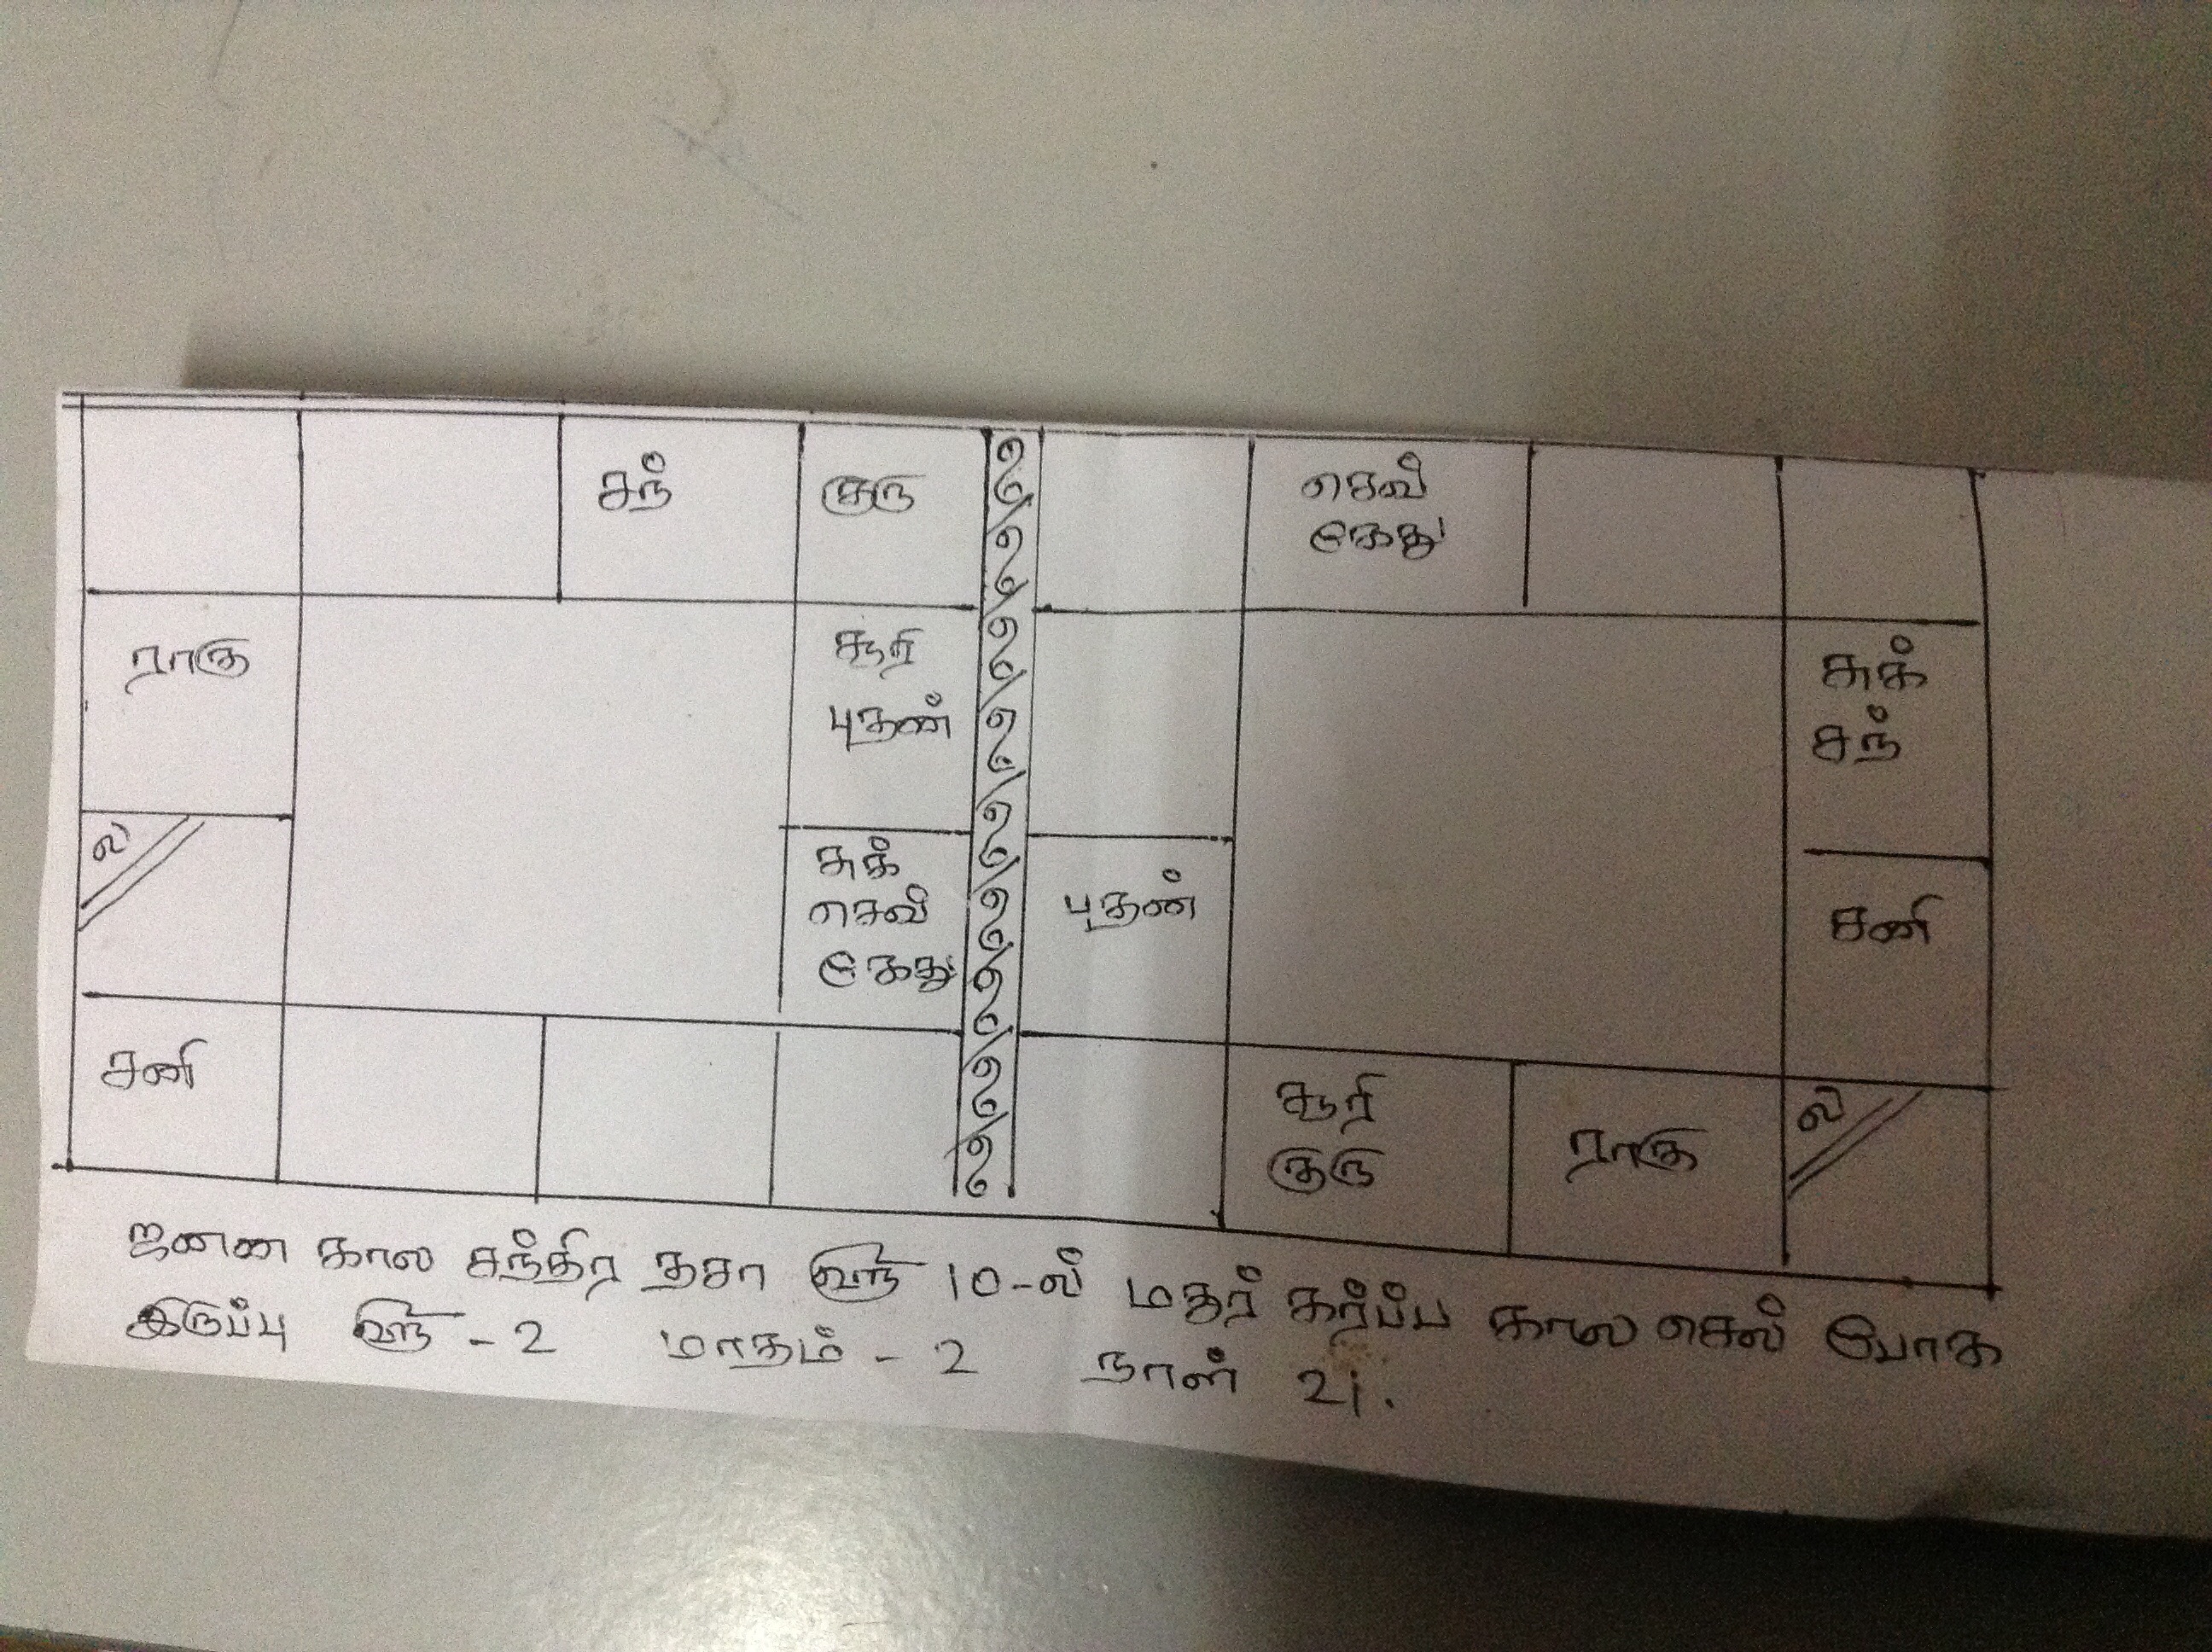 சந்
குரு
ராகு
சூரி
புதன்
ல
சுக்
செவ்
கேது
சனி
செவ்
கேது
சுக்
சந்
புதன்
சனி
சூரி
குரு
ராகு
ல
ஜனன கால சந்திர தசா வரு 10-ல் மதர் கர்ப்ப கால செல் போக
இருப்பு வரு - 2 மாதம் - 2 நாள் 21.